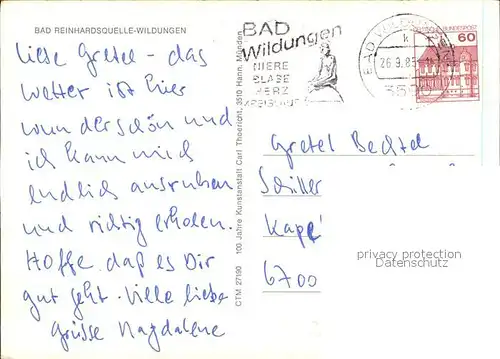 BAD REINHARDSQUELLE-WILDUNGEN
liebe Gretel - das
wetter ist hier
wunderschön und
ich kann mich
endlich ausruhen
und richtig erholen.
Hoffe daß es Dir
gut geht. Viele liebe
Grüsse Magdalene
CTM 27190 100 Jahre Kunstanstalt Carl Thoericht, 3510 Hann. Münden
BAD
Wildungen
NIERE
BLASE
HERZ
KREISLAUF
BAD WILDUNGEN
26.9.85
3590
DEUTSCHE BUNDESPOST
60
Gretel Bechtel
Schiller
Kape
6700
privacy protection
Datenschutz